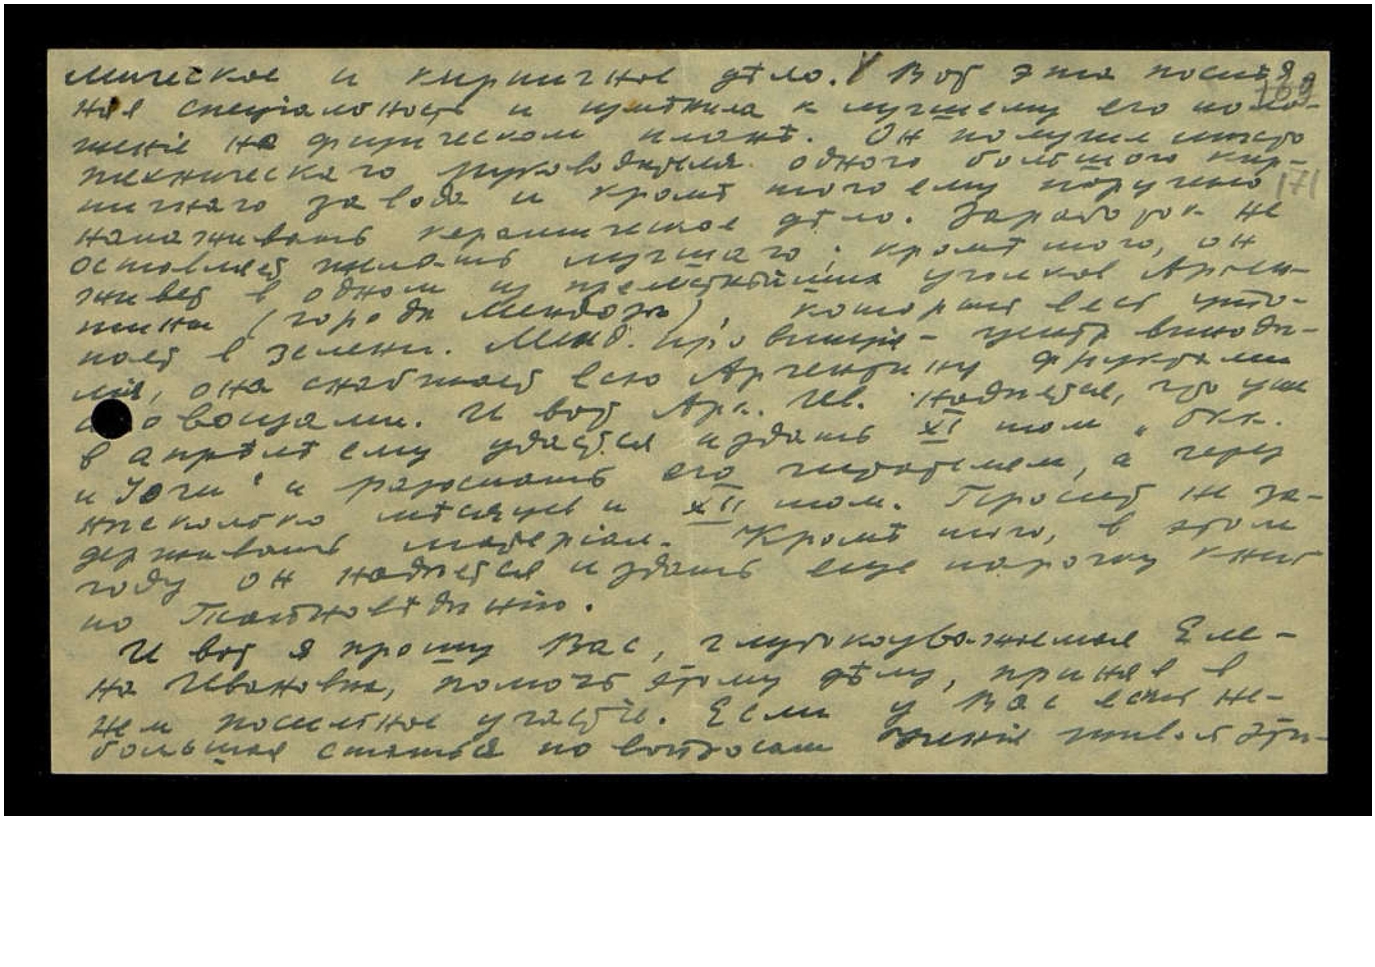 мическое и кирпичное дѣло. Вот эта послѣд-
няя спеціальность и измѣнила к лучшему его поло-
женіе на физическом планѣ. Он получил мѣсто
техническаго руководителя одного большого кир-
пичнаго завода и кромѣ того ему поручено
налаживать керамическое дѣло. Заработок не
оставляет желать лучшаго; кромѣ того, он
живет в одном из прелестнѣйших уголков Арген-
тины (города Мендозы), который весь уто-
пает в зелени. Менд. провинція - центр винодѣ-
лія, она снабжает всю Аргентину фруктами
и овощами. И вот Арк. Ив. надѣется, что уже
в апрѣлѣ ему удастся издать XI том „Окк.
и Йоги" и разослать его читателям, а через
нѣсколько мѣсяцев и XII том. Просит не за-
держивать матеріал. Кромѣ того, в этом
году он надѣется издать еще парочку книг
по
И вот я прошу Вас, глубокоуважаемая Еле-
на Ивановна, помочь этому дѣлу, приняв в
нем посильное участіе. Если у Вас есть не-
большая статья по вопросам живой Эти-
169
171